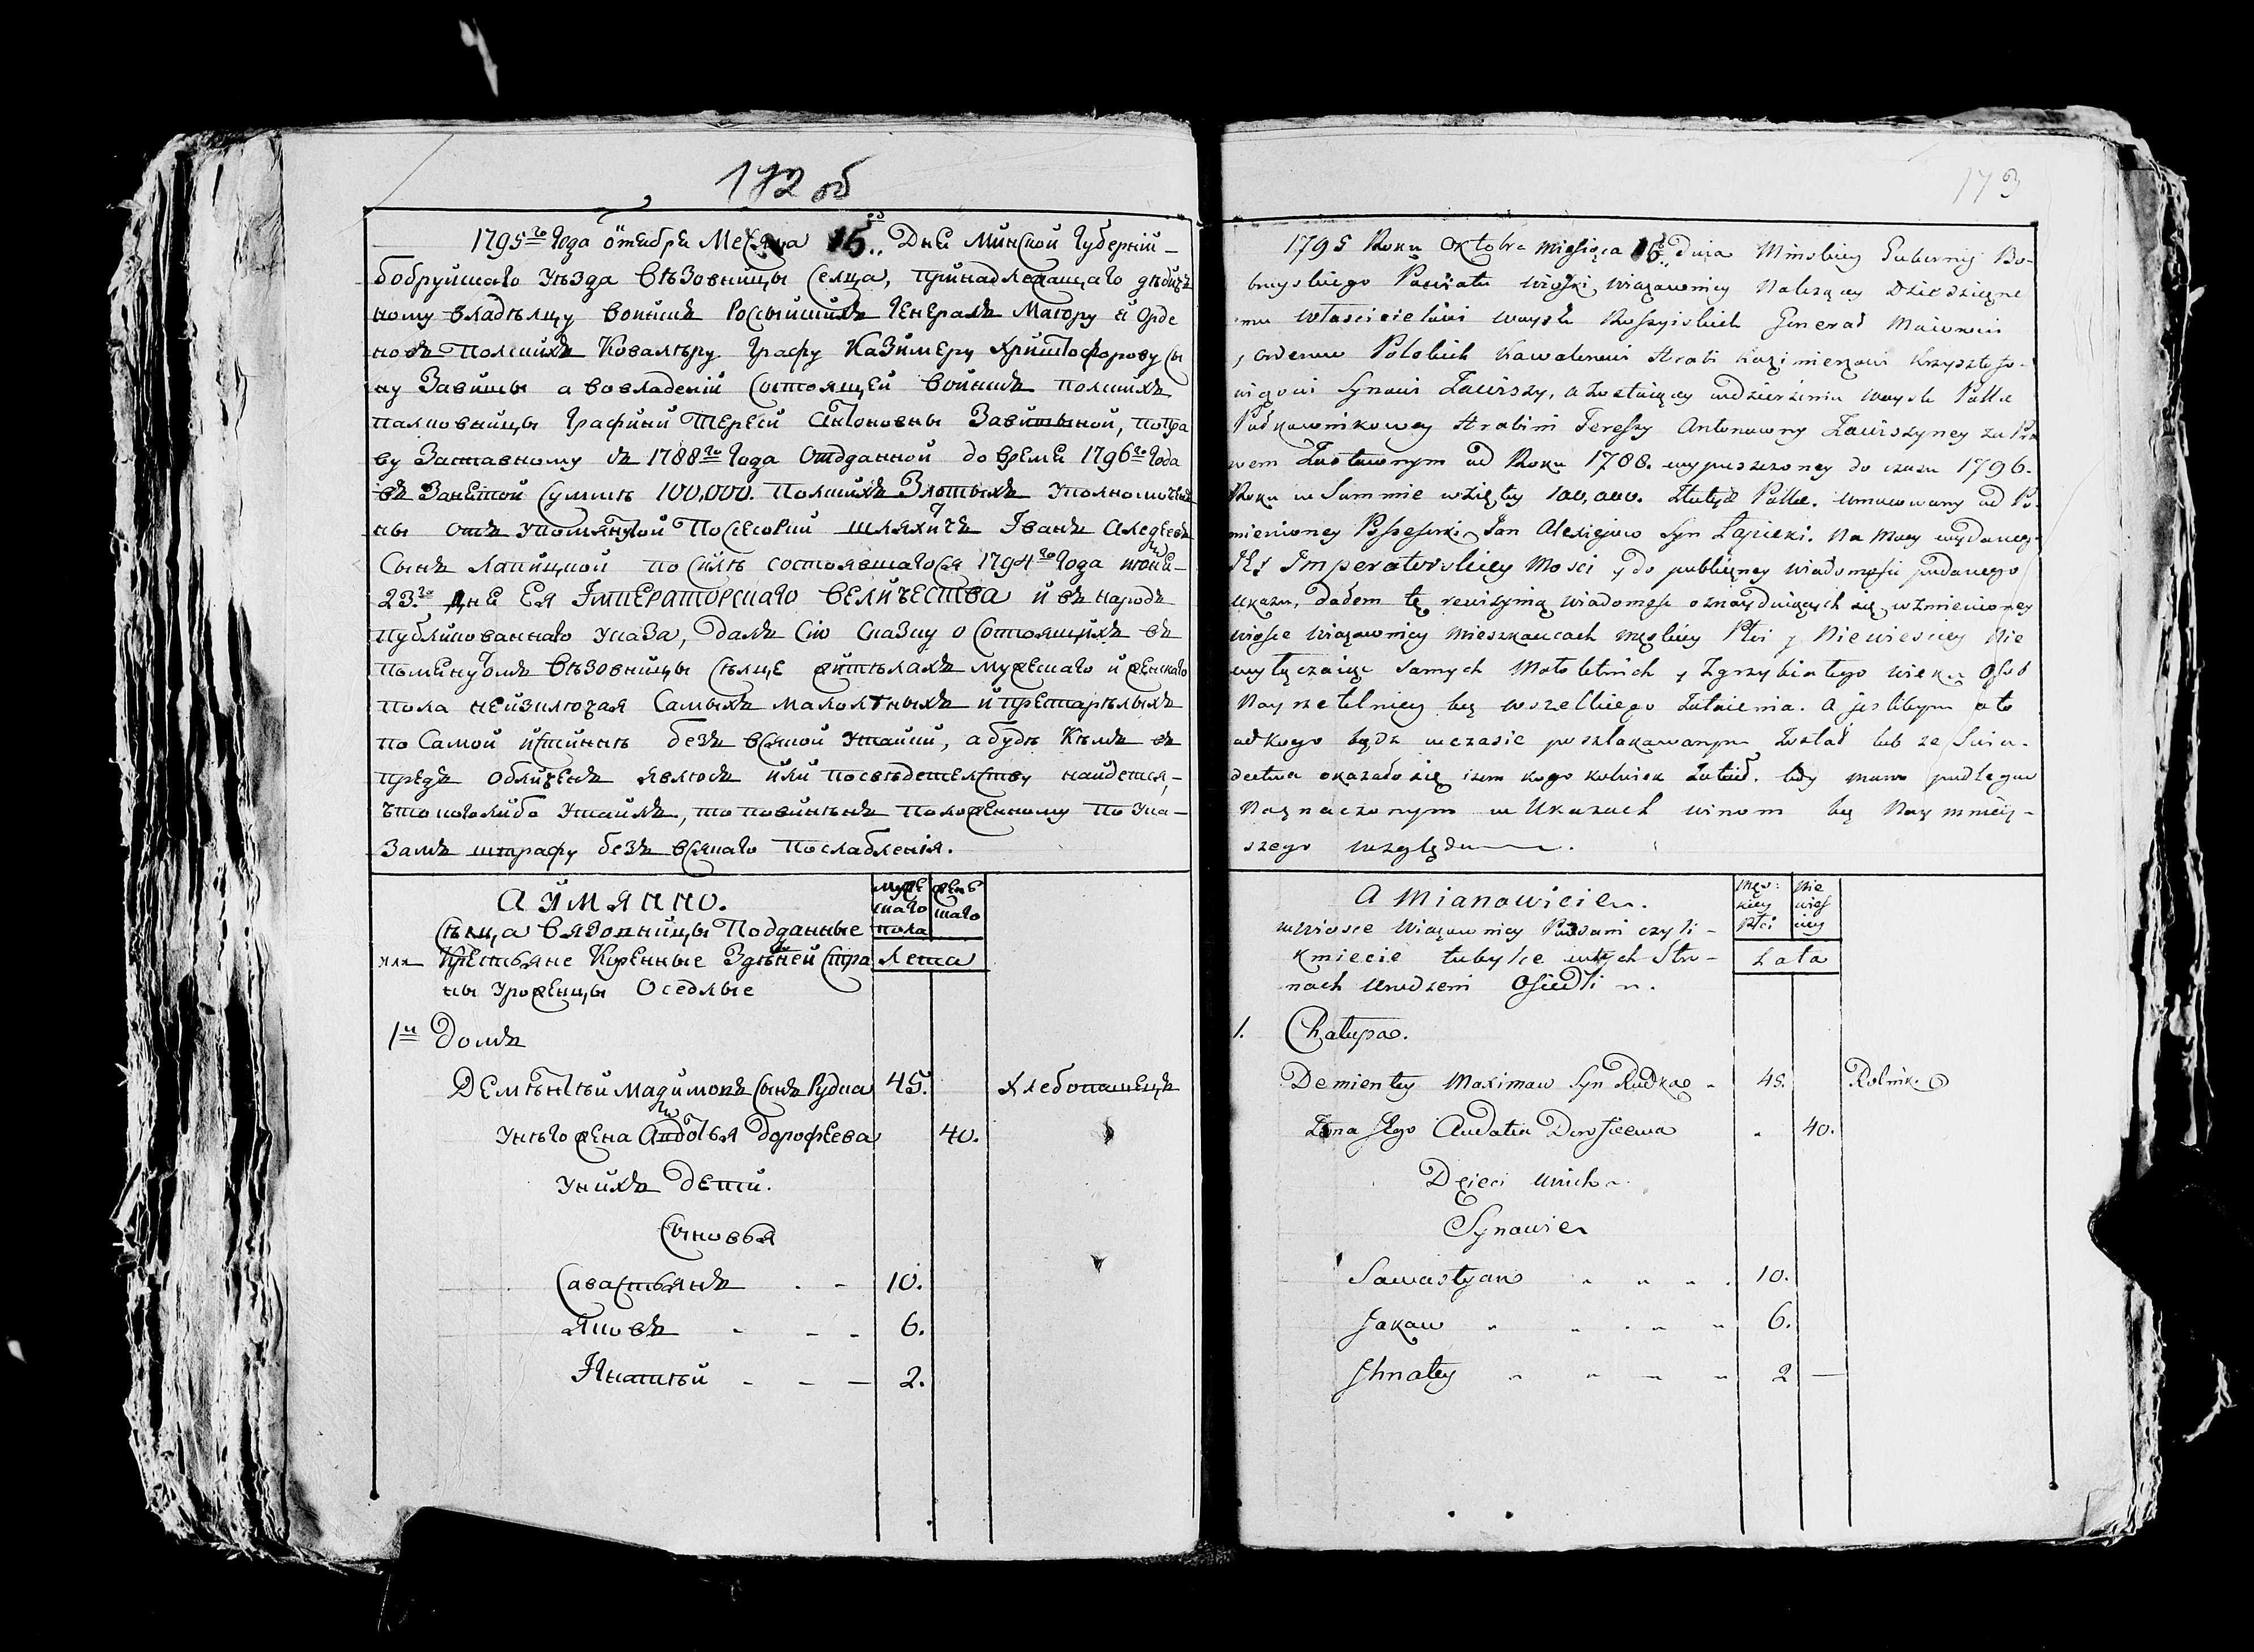 172 об
1795го Года Октебре Месяца 15 Дня Минской Губерній
бобруйшаго Уѣзда Вѣзовницы Селца, принадлежащаго дѣдич
ному владѣлцу войскъ Россыйскихъ Генералъ Маіору й Орде
новъ Полскихъ Ковалѣру Графу Казимеру Христофорову Сы
ну Завишы а вовладеній Состоящей войскъ полскихъ
палковницы Графини Терезій Антоновны Завишыной, попра
ву Заставному съ 1788го Года Отданной до време 1796го Года
въ Занятой Суммѣ 100,000. Полскихъ Злотыхъ Уполномочен
ны Отъ Упомянутой Посесорки шляхтичъ Іванъ Алексѣевъ
Сынъ Лапицкой по Силѣ состоявшагося 1794го Года июня
23го дня Ея Императорскаго Величества й въ народъ
публикованнаго Указа, далъ Сию Сказку о Состоящихъ въ
помянутомъ Вѣзовницы Сѣлце жителахъ мужескаго й женскаго
пола неизключая Самыхъ малолѣтныхъ и престарѣлыхъ
по Самой истиннѣ безъ всякой Утайки, а будѣ Кѣмъ въ
предъ обличенъ явлюсь или посвѣдетелству найдется,
что коголибо Утаилъ, то повинѣнъ положенному по Ука-
замъ штрафу безъ всякаго послабленія.
А имянно.
Муже
скаго
пола
жен
скаго
Сѣлца Вязовницы Подданные
или Крестьяне Коренные Здѣшней Стра
Лета
ны Уроженцы Оседлые
1й Домъ
Демѣнтѣй Мадимовъ Сынъ Рудка 45. Хлебопашецъ
Унѣго жена Авдотья Дорофеева 40.
Унихъ дети.
Сыновья
Савастьянъ 10.
Яковъ 6.
Игнатѣй 2.
173
1795 Roku Oktobra Miesiąca 15 Dnia Minskiey Gubernij Bo-
bruyskiego Powiatu wioski wiązownicy Należący Dziedziczne
mu włascicielowi woysk Rossyiskich Generał Maiorowi
y orderow Polskich Kawalerowi Hrabi Kazimierzowi Krzysztofo-
wiczowi Synowi Zawiszy, a Zostaiącey wdzierżeniu woysk Polle
Pułkownikowey Hrabini Teressy Antonowny Zawiszyney za Pra
wem Zastawnym od Roku 1788. wypuszczoney do czasu 1796.
Roku w Summie wziętey 100,000. Złotych Polle. umocowany od Po-
mienioney Possesorki Jan Alexiejow Syn Łapicki. Na Mocy wydanego
Jey Imperatorskiey Mosci y do publiczney wiadomości podanego
ukazu, dałem tę rewizyiną wiadomość oznayduiących się wzmienioney
wiosce wiązownicy mieszkańcach męskiey Płci y Niewiesciey Nie
wyłączaiąc samych Małoletnich y Zgrzybiałego wieku Osob
Nay rzetelniey bez wszelkiego Zataienia. a jesliby o to
od kogo bądz wczasie poszlakowanym Został lub ze Swia-
dectwa okazało się iżem kogo kolwiek Zataił. tedy mam podlegać
Naznaczonym w Ukazach winom bez Naymniey-
szego względu.
A Mianowicie.
męz:
kiey
Płci
Nie
wies
ciey
wwiosce Wiązownicy Poddani czyli
Kmiecie tubylce wtych Stro-
Lata
nach Urodzeni Osiedli.
1. Chałupa.
Demientey Maximow Syn Rudka 45. Rolnik.
Żona Jego Audotia Dorofieewa 40.
Dzieci unich.
Synowie
Sawastyan 10.
Jakow 6.
Jhnatey 2